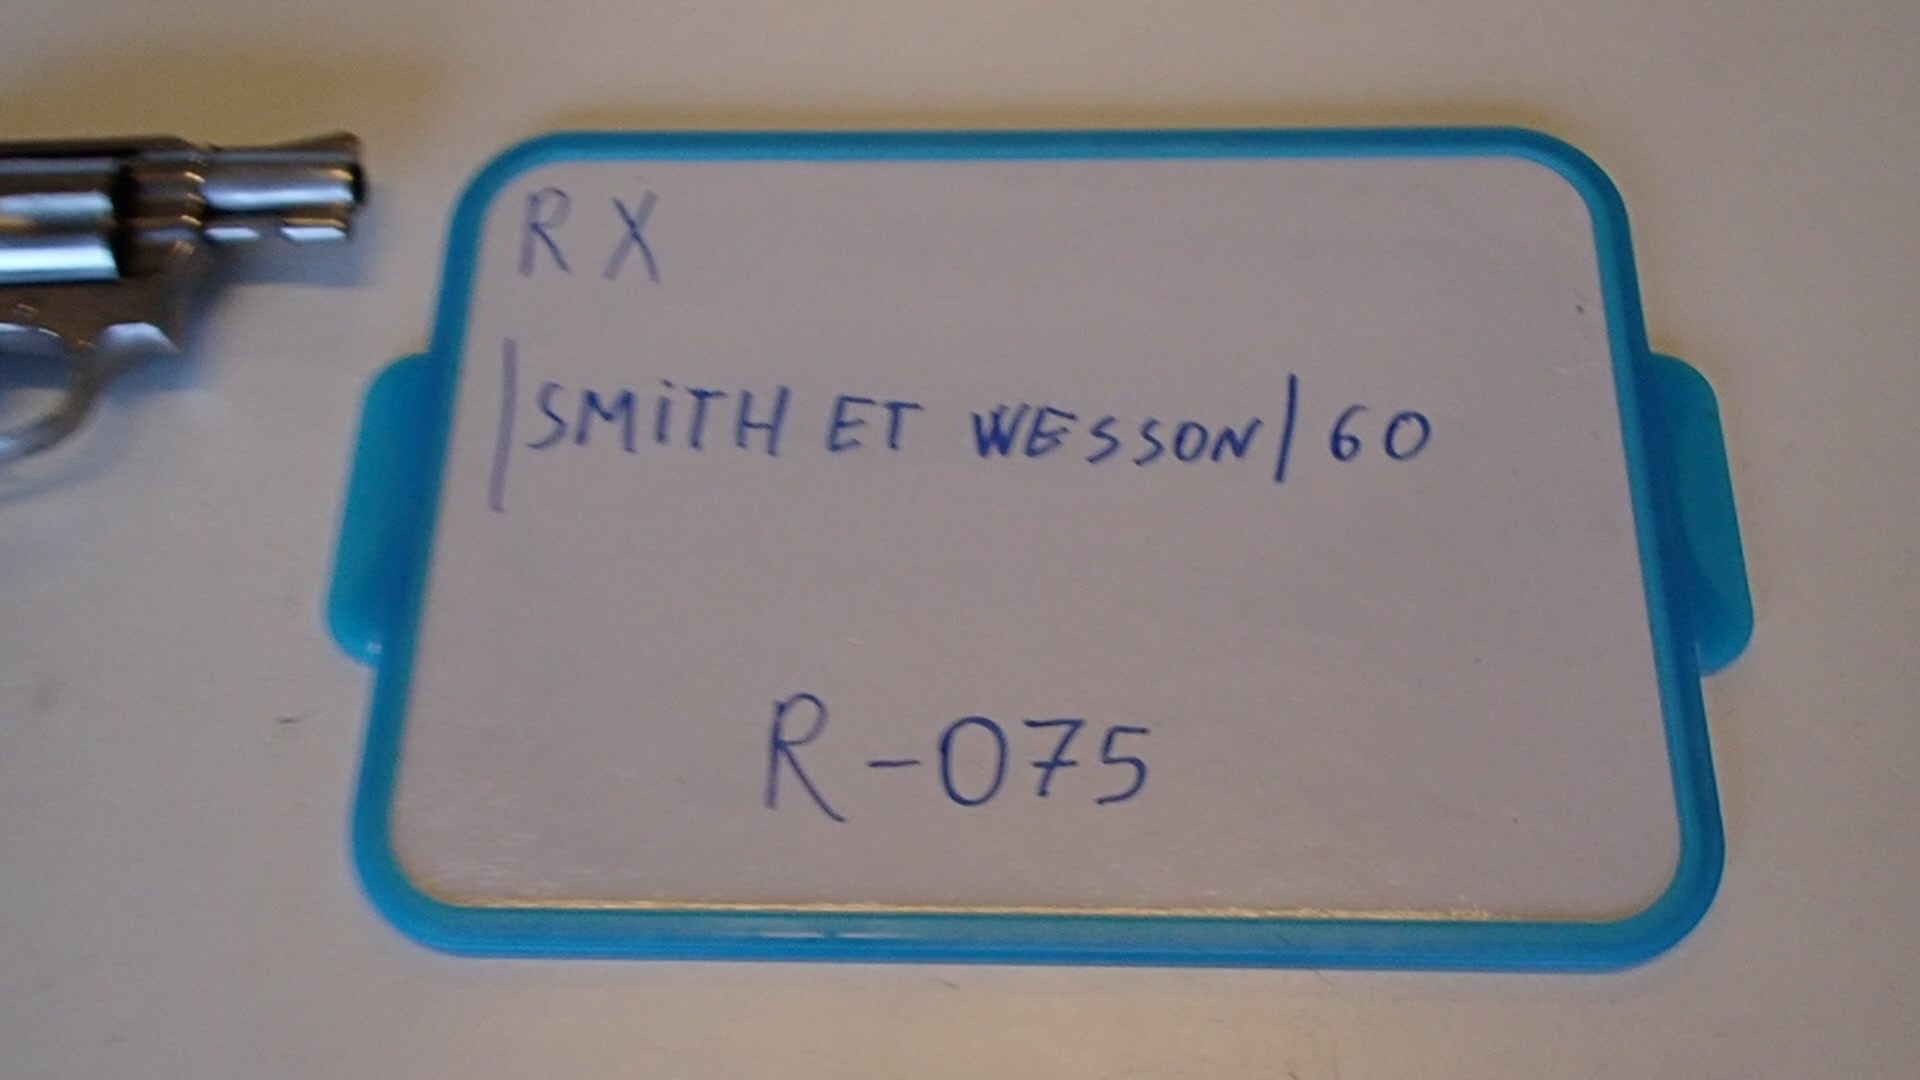 RX
/SMiTH ET WESSON/60
R-075